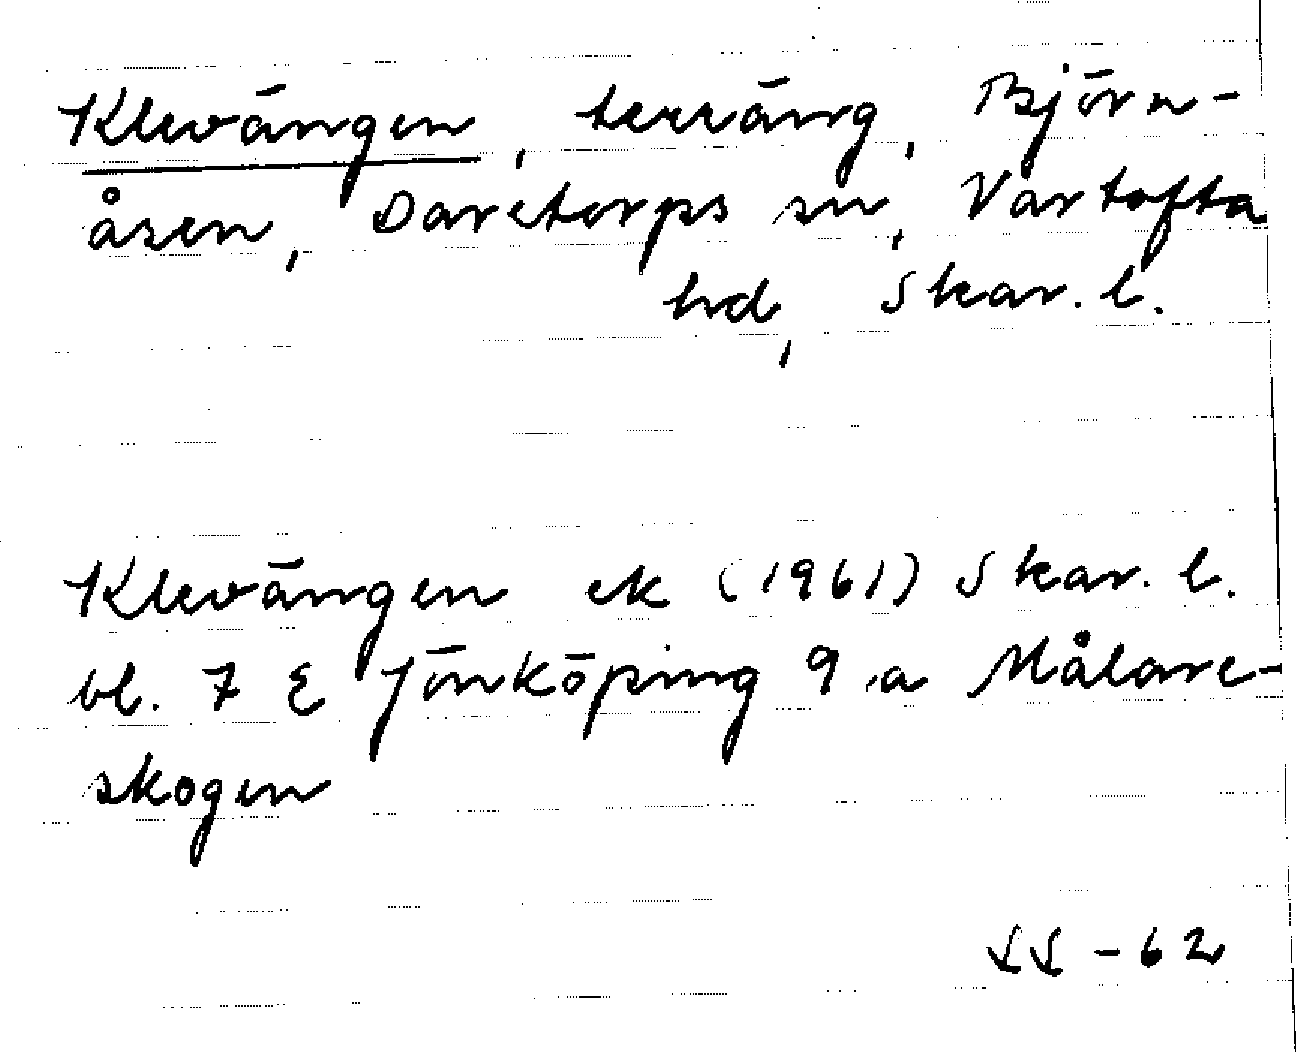 Klevängen, terräng, Björn-
åsen, Daretorps sn, Vartofta
hd, Skar. l.
Klevängen ek (1961) Skar. l.
bl. 7 E Jönköping 9 a Målare-
skogen
-62